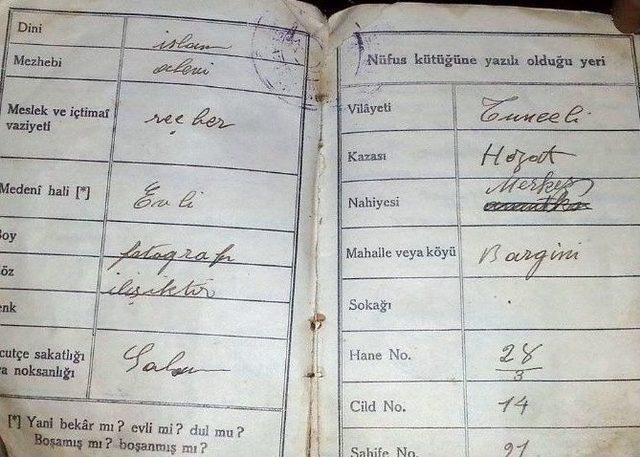 Dini islam
Mezhebi alevi
Meslek ve içtimaî reçber
vaziyeti
Medenî hali [*] Evli
Boy fotograf
Göz ilişiktir
enk
cutçe sakatlığı
a noksanlığı
[*] Yani bekâr mı? evli mi? dul mu?
Boşamış mı? boşanmış mı?
Nüfus kütüğüne yazılı olduğu yeri
Vilâyeti Tunceli
Kazası Hozat
Nahiyesi Merkez
Mahalle veya köyü Bargini
Sokağı
Hane No. 28/3
Cild No. 14
Sahife No. 91